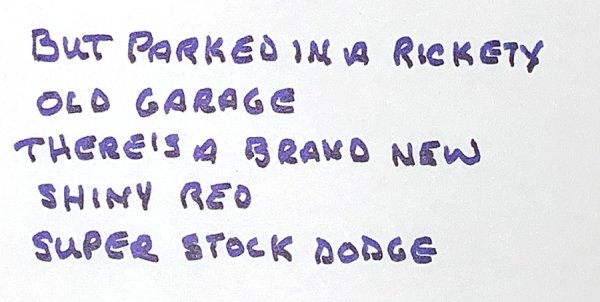 BUT PARKED IN A RICKETY
OLD GARAGE
THERE'S A BRAND NEW
SHINY RED
SUPER STOCK DODGE